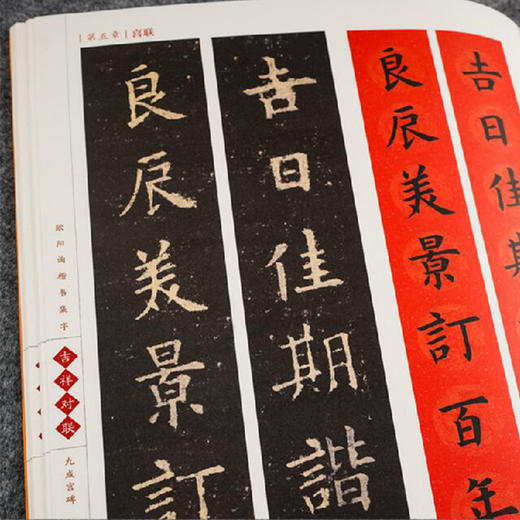 第五章 喜联
吉日佳期諧
良辰美景訂
吉日佳期
良辰美景訂百年
欧阳询楷书集字
吉祥对联
九成宫碑